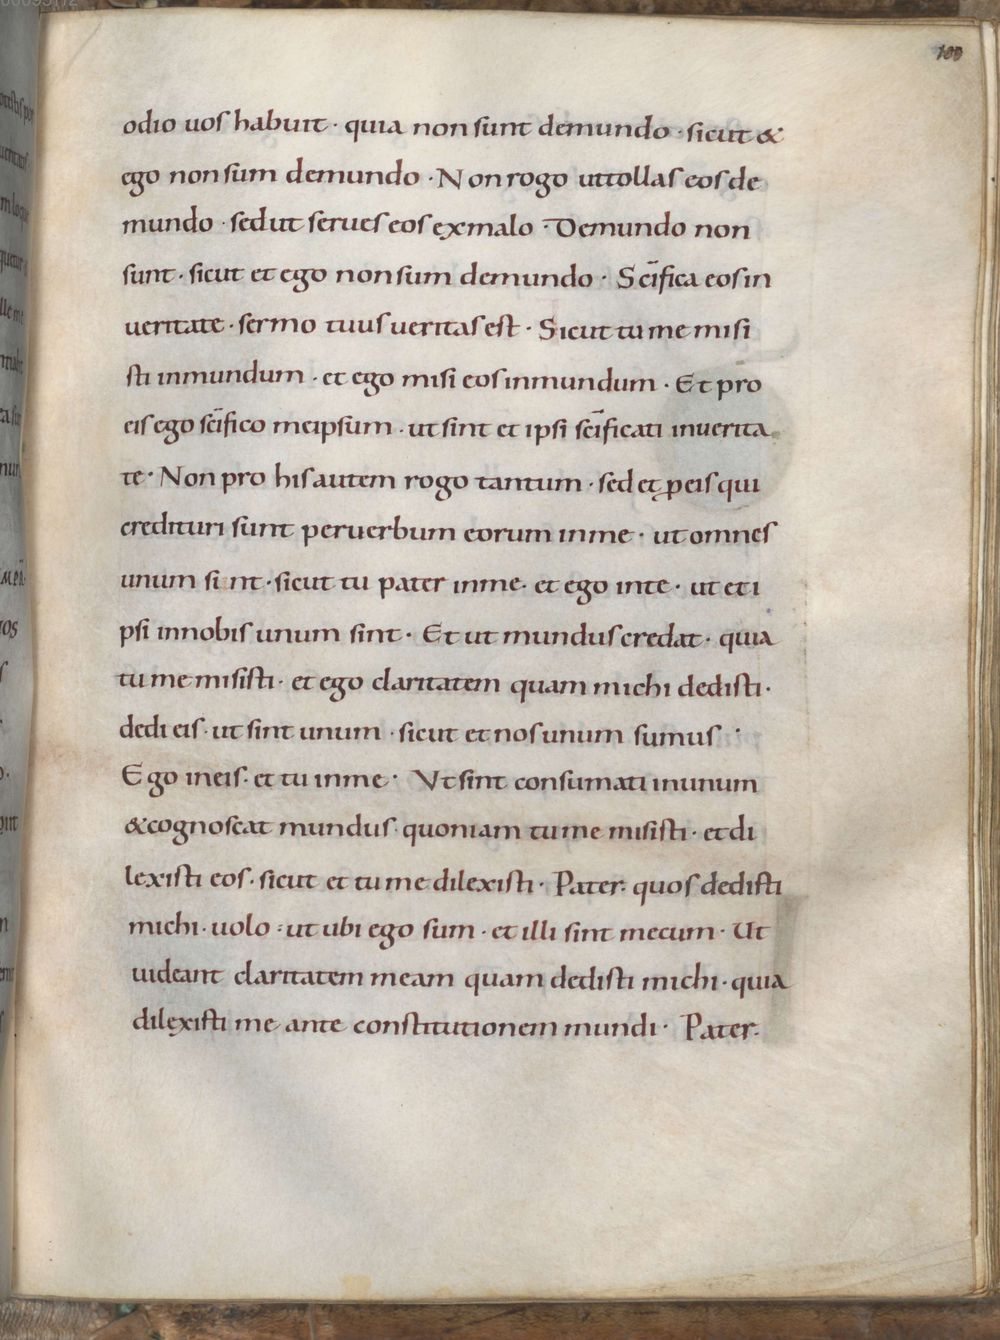 100
odio uos habuit · quia non sunt demundo · sicut &
ego non sum demundo · Non rogo uttollas eos de
mundo · sed ut serues eos exmalo · Demundo non
sunt · sicut et ego non sum demundo · Sc̄ifica eos in
ueritate · sermo tuus ueritas est · Sicut tu me misi
sti inmundum · et ego misi eos inmundum · Et pro
eis ego sc̄ifico meipsum · ut sint et ipsi sc̄ificati inuerita
te · Non pro his autem rogo tantum · sed et ꝓ eis qui
credituri sunt peruerbum eorum inme · ut omnes
unum sint · sicut tu pater inme · et ego inte · ut et i
psi innobis unum sint · Et ut mundus credat · quia
tu me misisti · et ego claritatem quam michi dedisti ·
dedi eis · ut sint unum · sicut et nos unum sumus ·
Ego ineis · et tu inme · Vt sint consumati inunum
& cognoscat mundus · quoniam tu me misisti · et di
lexisti eos · sicut et tu me dilexisti · Pater · quos dedisti
michi · uolo · ut ubi ego sum · et illi sint mecum · Ut
uideant claritatem meam quam dedisti michi · quia
dilexisti me ante constitutionem mundi · Pater ·